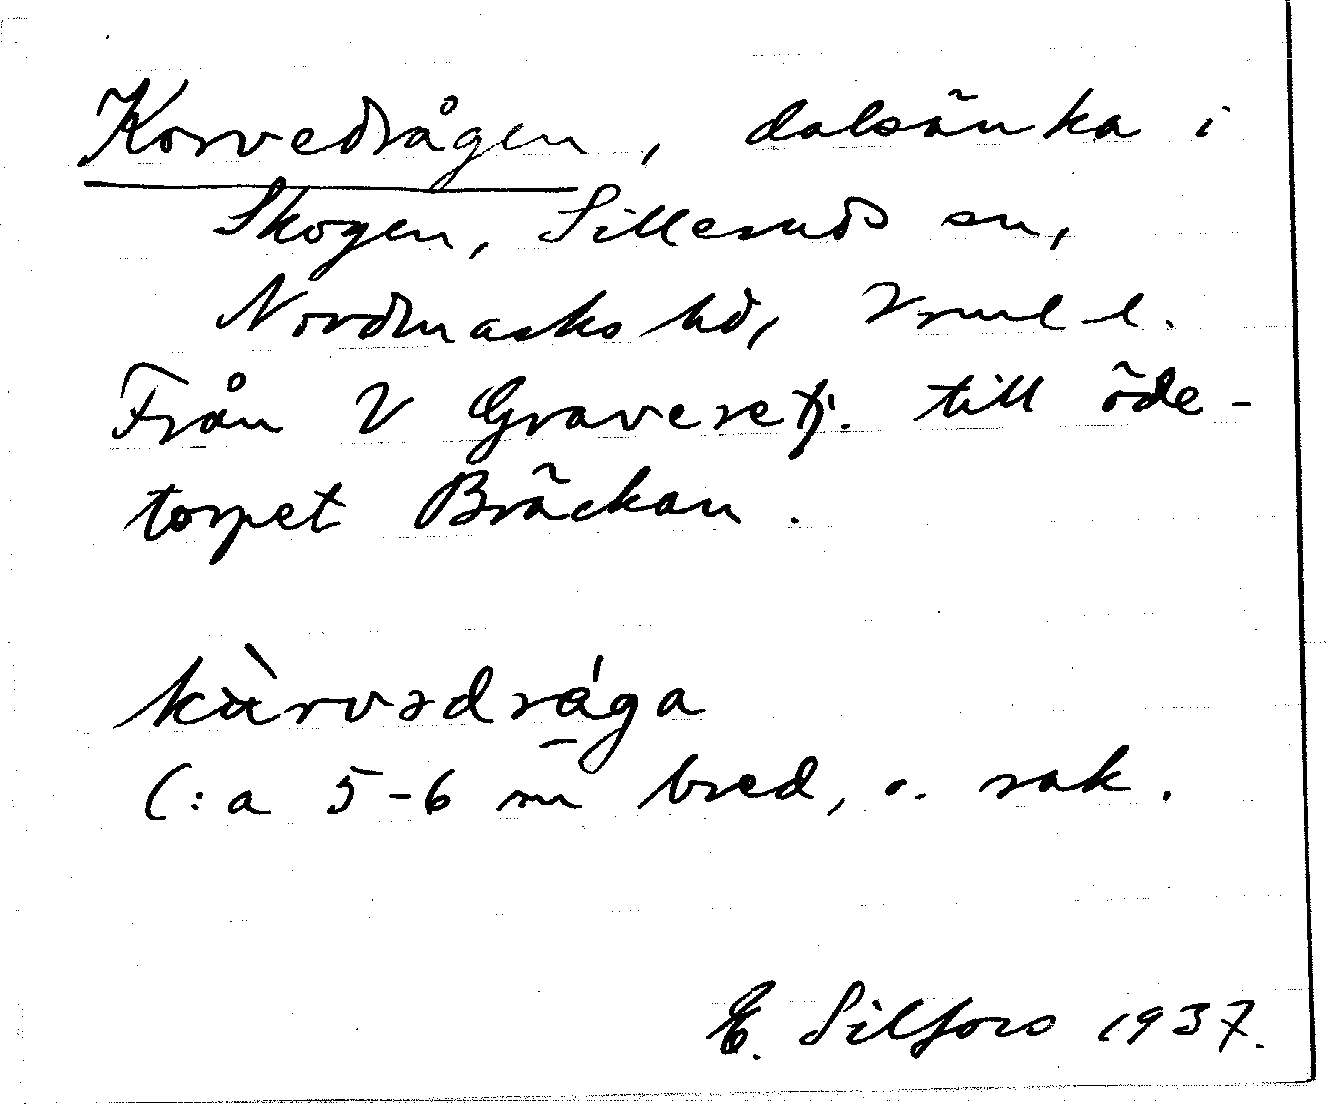 Korvedrågen, dalsänka i
Skogen, Silleruds sn,
Nordmarks hd, Vrml l.
Från V Graveretj. till öde-
torpet Bräckan.
kùrvədrága
C:a 5-6 m bred, o. rak.
E. Silfors 1937.